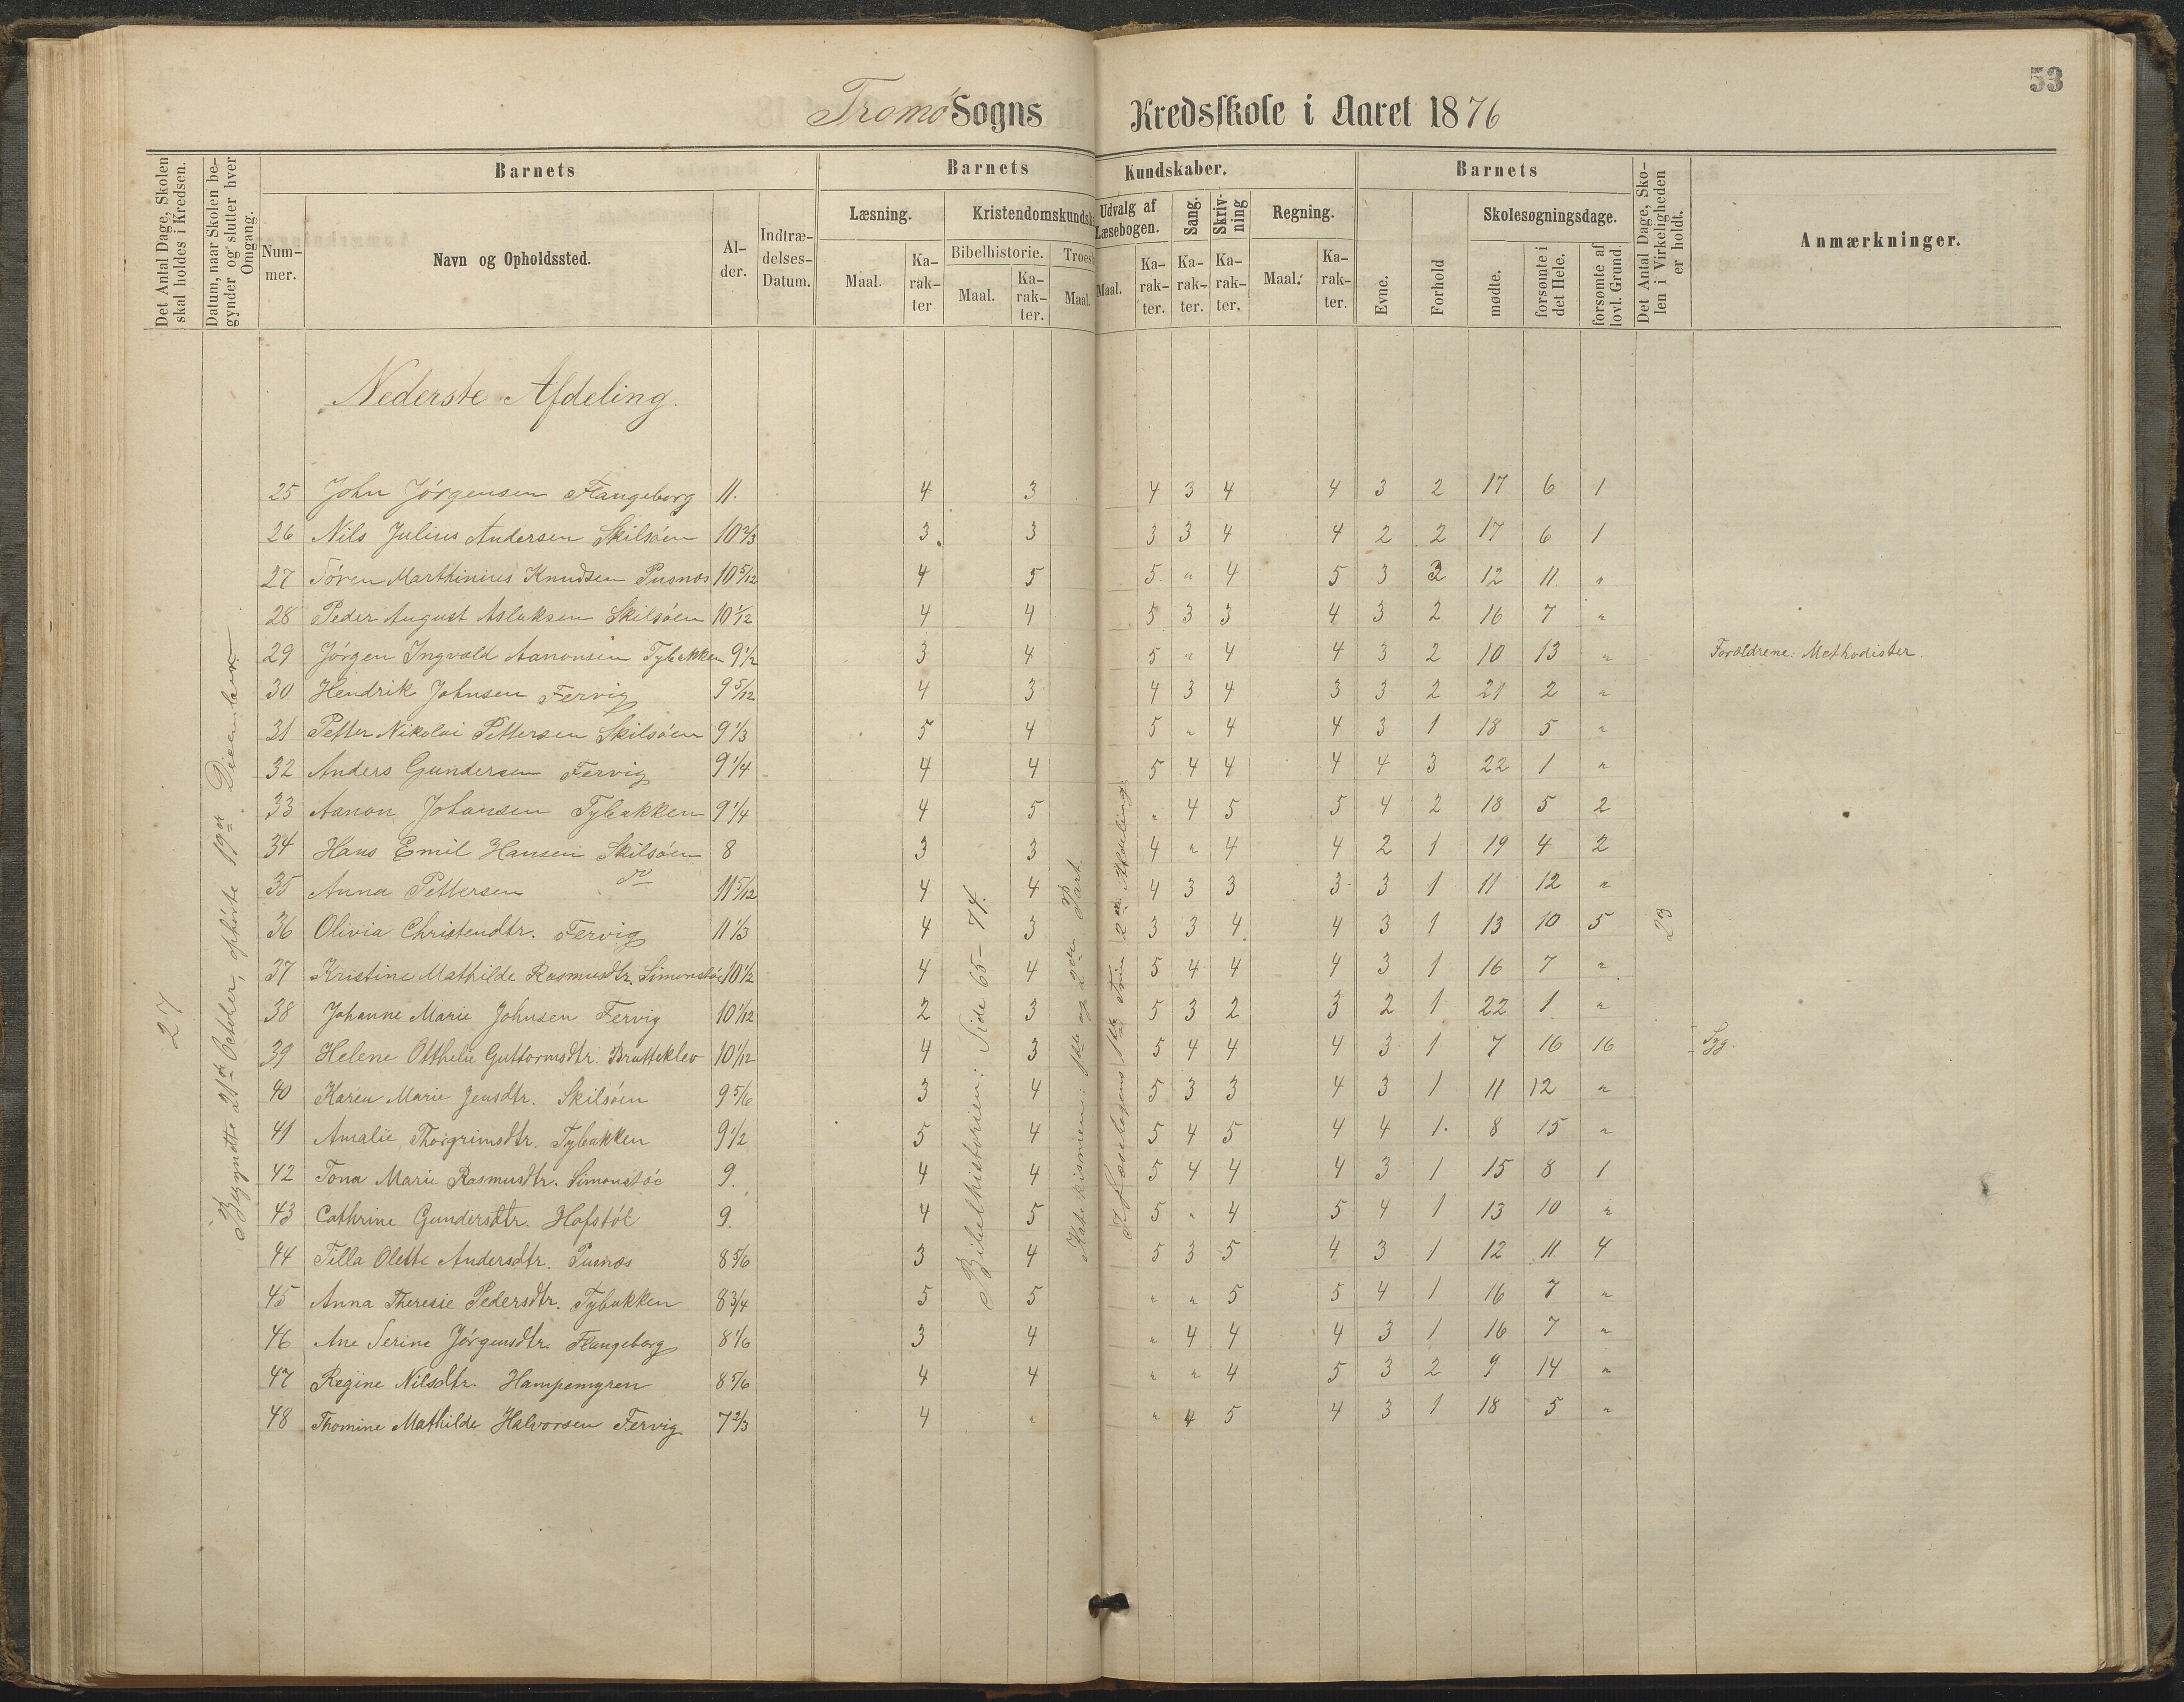 53
Tromø Sogns Kredsskole i Aaret 1876
Det Antal Dage, Skolen skal holdes i Kredsen.
Datum, naar Skolen begynder og slutter hver Omgang.
Barnets
Barnets Kundskaber.
Barnets
Det Antal Dage, Skolen i Virkeligheden er holdt.
Anmærkninger.
Nummer.
Navn og Opholdssted.
Alder.
Indtrædelses-Datum.
Læsning.
Kristendomskundsk
Udvalg af Læsebogen.
Sang.
Skrivning
Regning.
Evne.
Forhold
Skolesøgningsdage.
Bibelhistorie.
Troes
Maal.
Karakter
Maal.
Karakter.
Maal.
Maal.
Karakter.
Karakter.
Karakter.
Maal.
Karakter.
mødte.
forsømte i det Hele.
forsømte af lovl. Grund.
Nederste Afdeling.
25 John Jörgensen Flangeborg 11. 4 3 4 3 4 4 3 2 17 6 1
26 Nils Julius Andersen Skilsöen 10 2/3 3 3 3 3 4 4 2 2 17 6 1
27 Sören Marthinius Knudsen Pusnæs 10 5/12 4 5 5 " 4 5 3 2 12 11 "
28 Peder August Aslaksen Skilsöen 10 1/12 4 4 5 3 3 4 3 2 16 7 "
29 Jörgen Ingvald Aanonsen Tybakken 9 1/2 3 4 5 " 4 4 3 2 10 13 " Forældrene: Methodister.
30 Hendrik Johnsen Fervig 9 5/12 4 3 4 3 4 3 3 2 21 2 "
31 Petter Nikolai Pettersen Skilsöen 9 1/3 5 4 5 " 4 4 3 1 18 5 "
32 Anders Gundersen Fervig 9 1/4 4 4 5 4 4 4 4 3 22 1 "
33 Aanon Johansen Tybakken 9 1/4 4 5 " 4 5 5 4 2 18 5 2
34 Hans Emil Hansen Skilsöen 8 3 3 4 " 4 4 2 1 19 4 2
35 Anna Pettersen do 11 5/12 4 4 4 3 3 3 3 1 11 12 "
36 Olivia Christendtr. Fervig 11 1/3 4 3 3 3 4 4 3 1 13 10 5
37 Kristine Mathilde Rasmusdtr. Simonstöe 10 1/2 4 4 5 4 4 4 3 1 16 7 "
38 Johanne Marie Johnsen Fervig 10 1/12 2 3 5 3 2 3 2 1 22 1 "
39 Helene Otthelie Guttormsdtr. Bratteklev 10 1/12 4 3 5 4 4 4 3 1 7 16 16 Syg.
40 Karen Marie Jensdtr. Skilsöen 9 5/6 3 4 5 3 3 4 3 1 11 12 "
41 Amalie Thorgrimsdtr. Tybakken 9 1/2 5 4 5 4 5 4 4 1 8 15 "
42 Tona Marie Rasmusdtr. Simonstöe 9. 4 4 5 4 4 4 3 1 15 8 1
43 Cathrine Gundersdtr. Hofstöl 9. 4 5 5 " 4 5 4 1 13 10 "
44 Tilla Olette Andersdtr. Pusnæs 8 5/6 3 4 5 3 5 4 3 1 12 11 4
45 Anna Theresie Pedersdtr. Tybakken 8 3/4 5 5 " " 5 5 4 1 16 7 "
46 Ane Serine Jörgensdtr. Flangeborg 8 1/6 3 4 " 4 4 4 3 1 16 7 "
47 Regine Nilsdtr. Hampemyren 8 5/6 4 4 " " 4 5 3 2 9 14 "
48 Thomine Mathilde Halvorsen Fervig 7 2/3 4 " " 4 5 4 3 1 18 5 "
27
Begyndte 21de October, ophörte 19de December.
Bibelhistorien: Side 65-74.
Katekismen: 1ste og 2den Part.
I Læsebogens 1ste Trin 2den Afdeling.
23